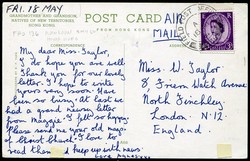 FRI. 18 MAY
GRANDMOTHER AND GRANDSON,
NATIVES OF NEW TERRITORIES,
HONG KONG
POST CARD
AIR
MAIL
My dear Miss Taylor,
I do hope you are well
Thank you for our lovely
letter. I hope to write
you a newsy letter soon. Have
been so busy. At last we
had a grand letter
from Maggie. I felt so happy
Please send me your old mags.
of Church. I love to
read them and keep up with news
Miss W. Taylor
8, Friern Watch Avenue
North Finchley
London. N. 12
England.